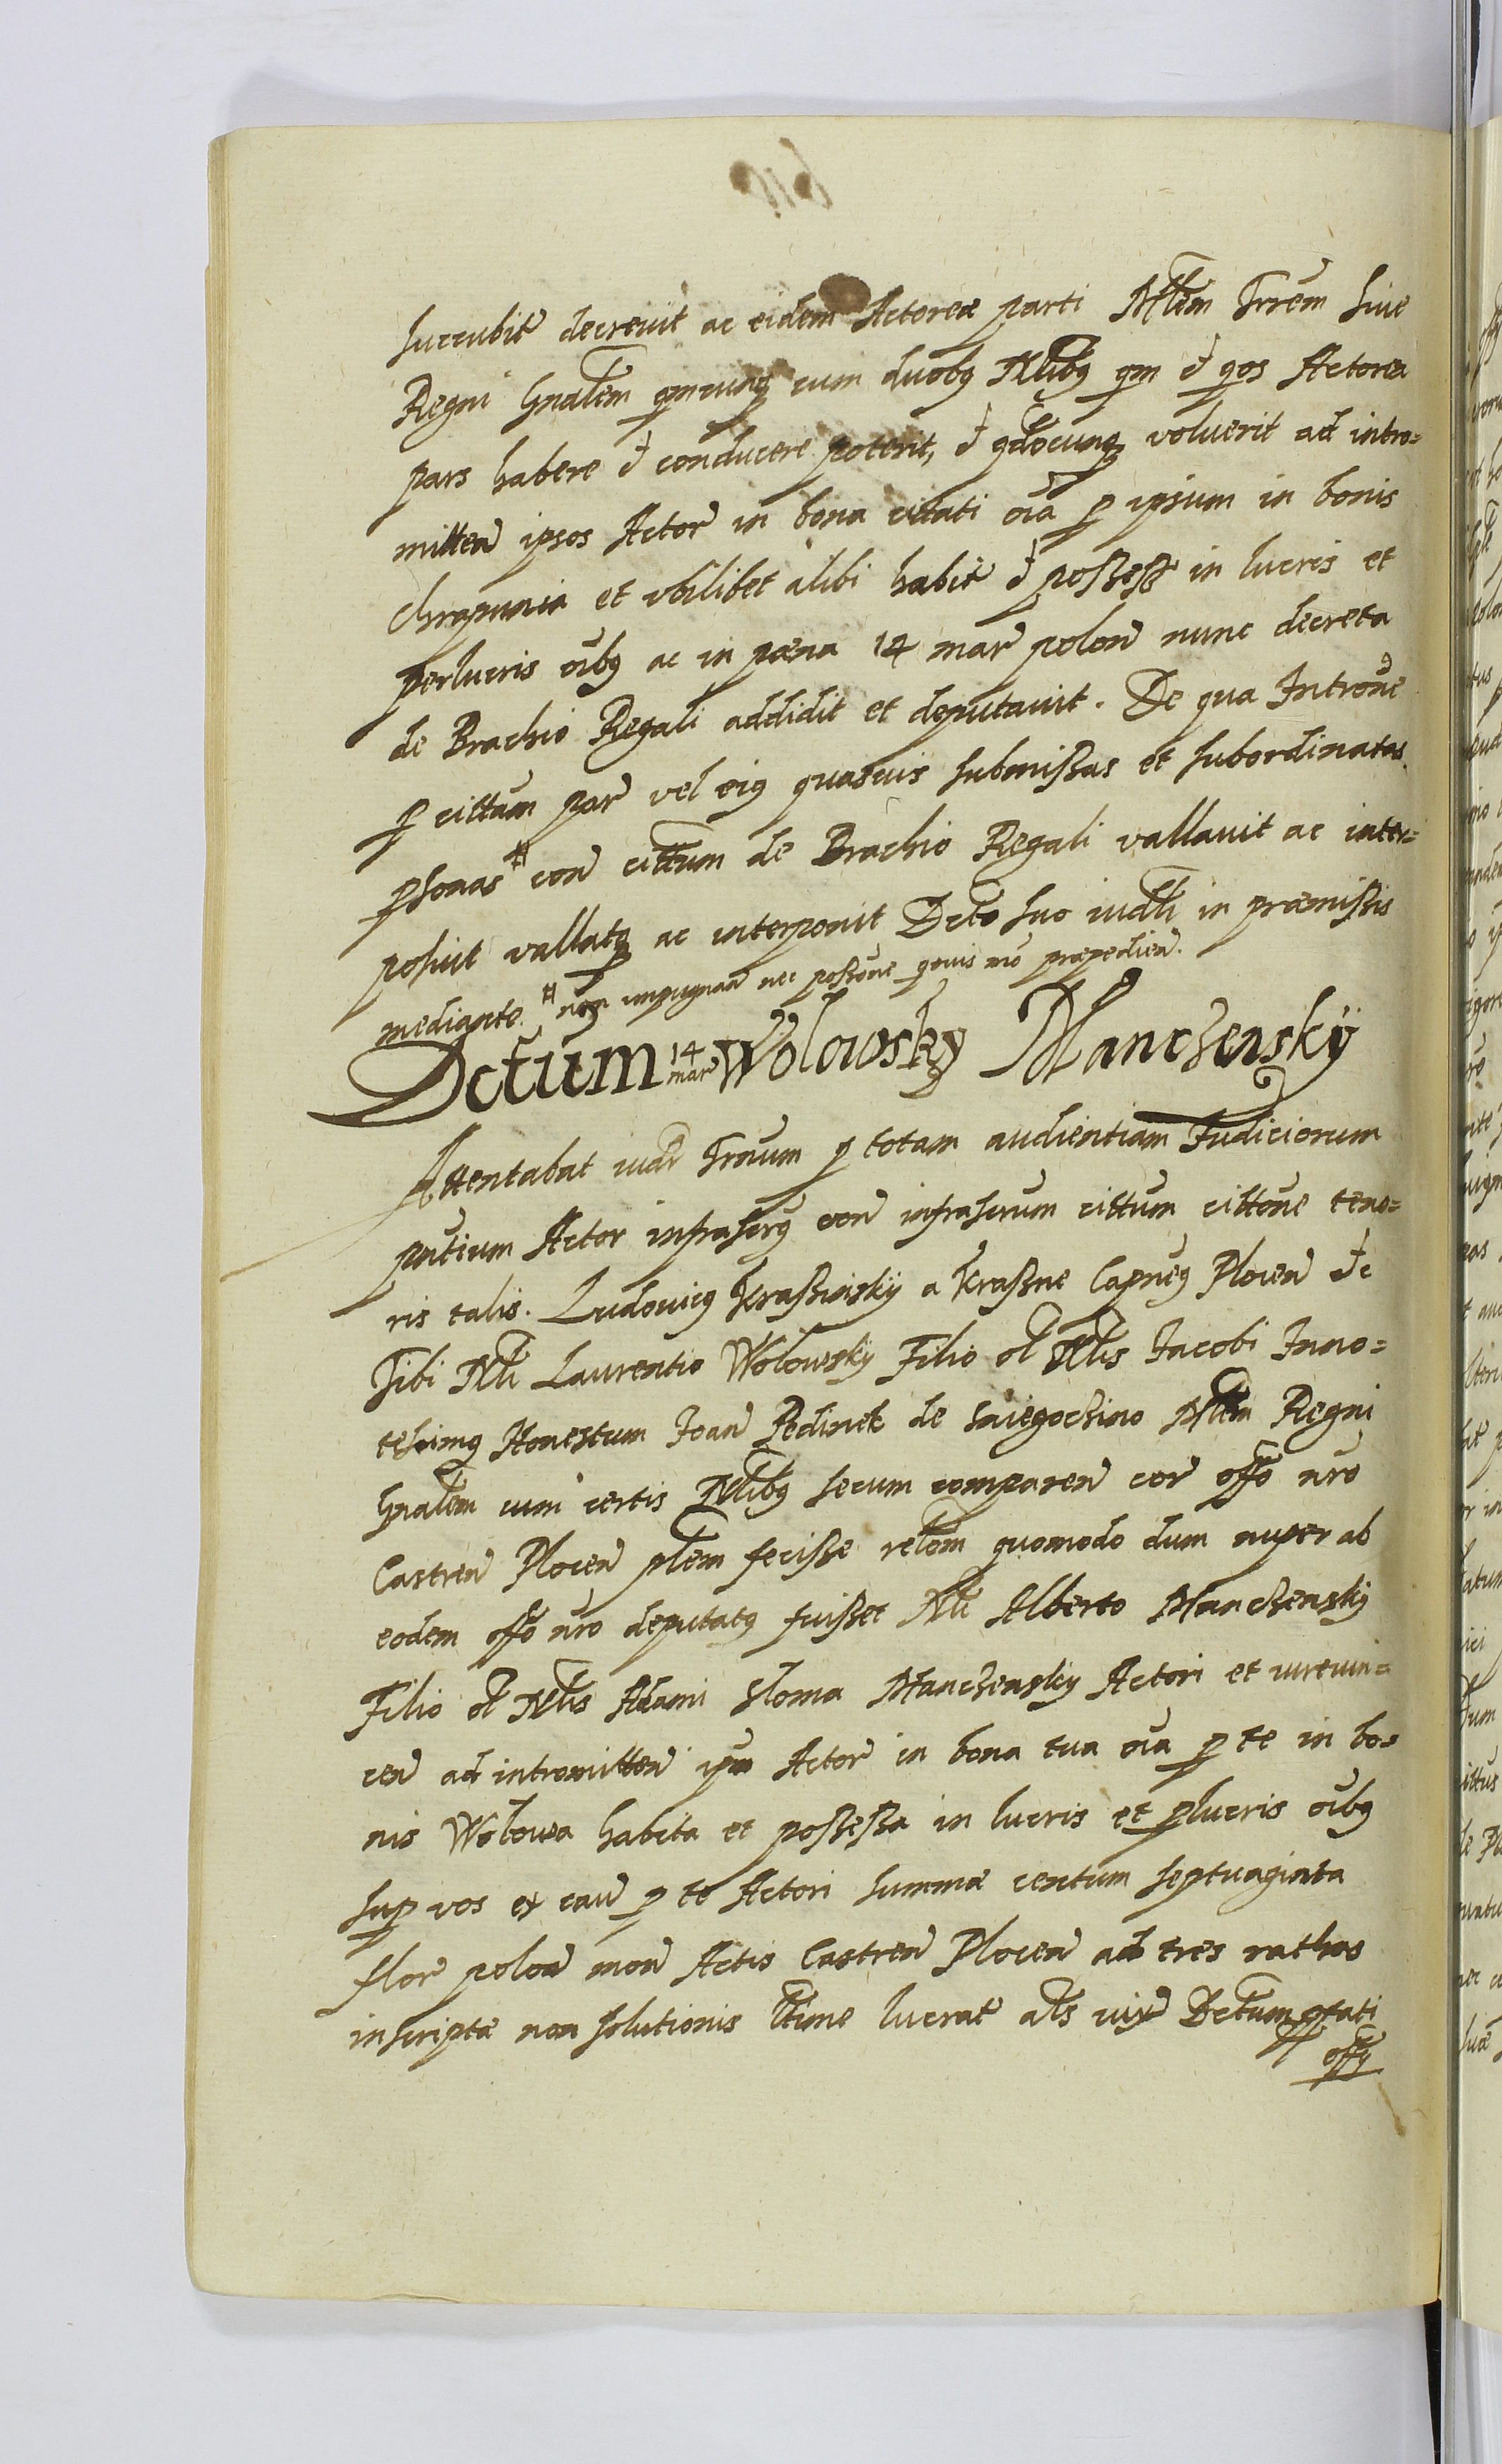 succubit decrevit ac eidem Actoreæ parti Mlem Trrem sive
Regni Gnalem qmcunq cum duobq Nlibq qm et qos Actorea
pars habere et conducere poterit, et qdocunq voluerit ad intro=
mitten ipsos Actor in bona citati oia p ipsum in bonis
Chrapunia et vbilibet alibi habit et possess in lucris et
perlucris oibq ac in pæna 14 mar polon nunc decreta
de Brachio Regali addidit et deputavit. De qua Introne
p cittum par vel eiq quasvis submissas et subordinatas
psonas # con cittum de Brachio Regali vallavit ac inter=
posuit vallatq ac interponit Dcto suo iudli in præmissis
mediante. # non impugnan nec possone qovis mo præpedien.
Dctum 14 mar Wolowsky Manczensky
Attentabat iudr Trnum p totam audientiam Judiciorum
pntium Actor infrascrq con infrascrum cittum cittone teno=
ris talis. Ludovicq Krassinsky a Krassne Capneq Plocen etc
Tibi Nli Laurentio Wolowsky Filio ol Nlis Jacobi Inno=
tescimq Honestum Joan Pedinek de Sniegochino Mlem Regni
Gnalem cum certis Nlibq secum comparen cor offo nro
Castren Plocen plem fecisse relom quomodo dum nuper ab
eodem offo nro deputatq fuisset Nli Alberto Manczensky
Filio ol Nlis Adami Sloma Manczensky Actori et iurevin=
cen ad intromitten ipm Actor in bona tua oia p te in bo=
nis Wolowa habita et possessa in lucris et plucris oibq
sup vos ex cau p te Actori summæ centum septuaginta
flor polon mon Actis Castren Plocen ad tres rathas
inscriptæ non solutionis ltime lucrat als iux Dctum pfati
offq